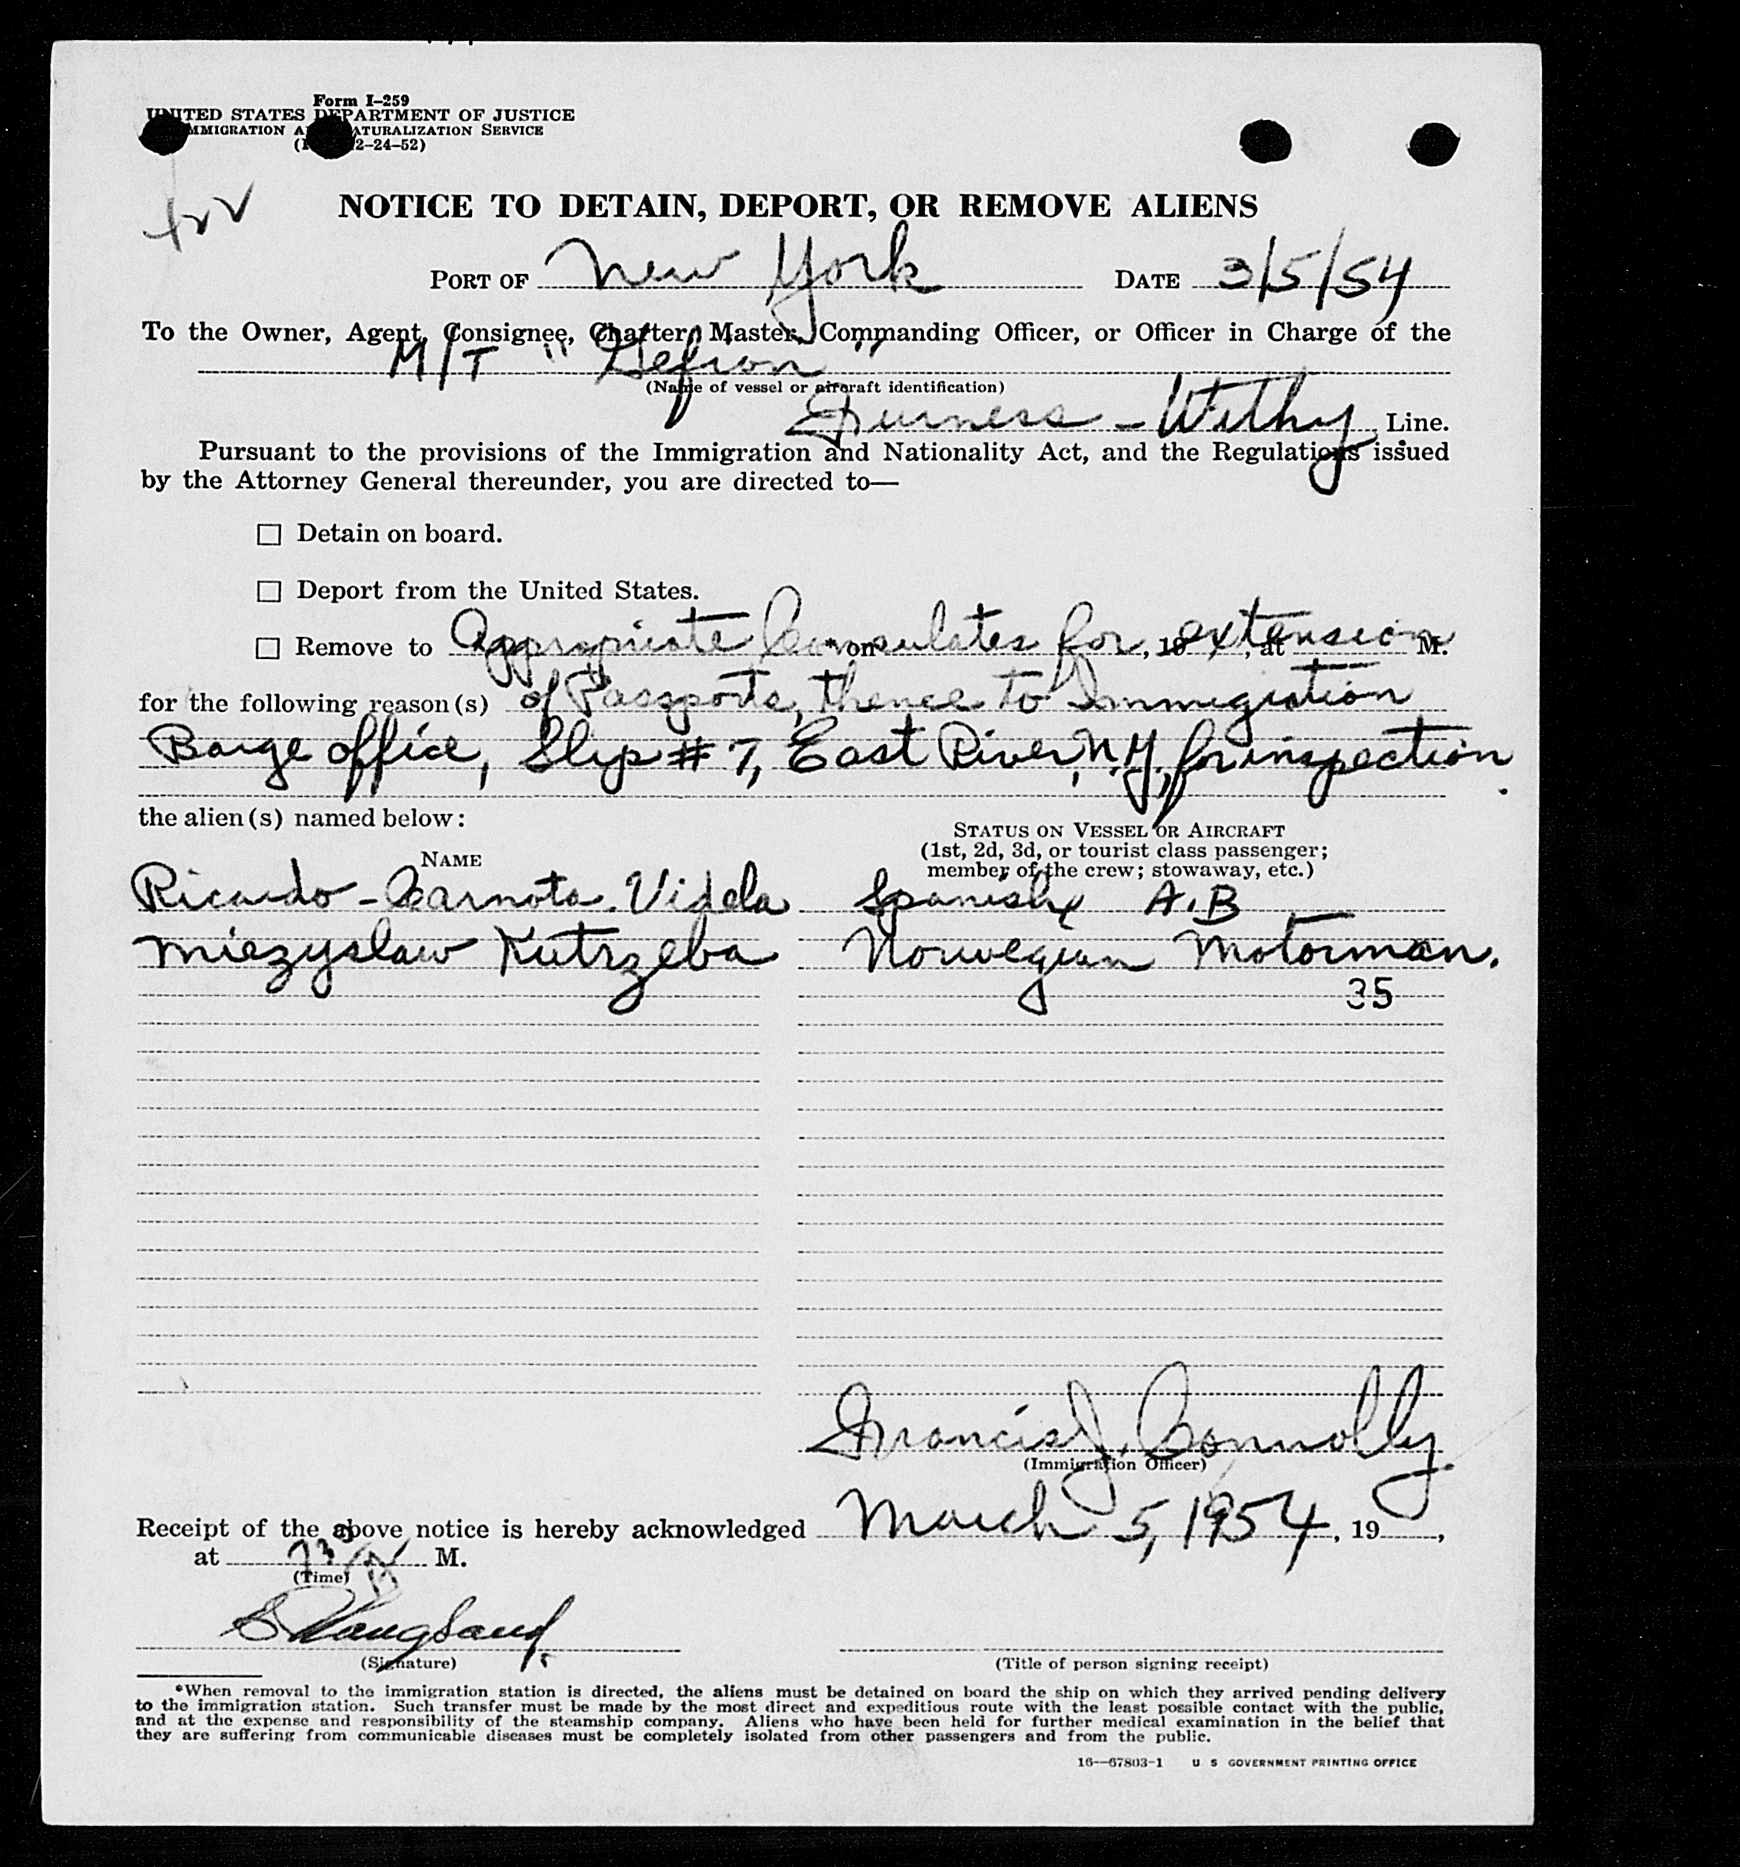 Form I-259
UNITED STATES DEPARTMENT OF JUSTICE
IMMIGRATION AND NATURALIZATION SERVICE
2-24-52)
NOTICE TO DETAIN, DEPORT, OR REMOVE ALIENS
PORT OF New York DATE 3/5/54
To the Owner, Agent, Consignee, Charter, Master, Commanding Officer, or Officer in Charge of the
M/T "Gefion"
(Name of vessel or aircraft identification)
Furness - Withy Line.
Pursuant to the provisions of the Immigration and Nationality Act, and the Regulations issued
by the Attorney General thereunder, you are directed to—
☐ Detain on board.
☐ Deport from the United States.
☐ Remove to Appropriate Consulates for extension * on , 19 , at M.
for the following reason(s) of Passports, thence to Immigration
Barge office, Slip # 7, East River, N.Y., for inspection.
the alien(s) named below:
NAME
STATUS ON VESSEL OR AIRCRAFT
(1st, 2d, 3d, or tourist class passenger;
member of the crew; stowaway, etc.)
Ricardo - Carnota. Videla Spanish A.B
Miezyslaw Kutrzeba Norwegian Motorman.
35
Francis J. Connolly
(Immigration Officer)
Receipt of the above notice is hereby acknowledged March 5, 1954, 19 ,
at 730 A M.
(Time)
(Signature)
(Title of person signing receipt)
*When removal to the immigration station is directed, the aliens must be detained on board the ship on which they arrived pending delivery
to the immigration station. Such transfer must be made by the most direct and expeditious route with the least possible contact with the public,
and at the expense and responsibility of the steamship company. Aliens who have been held for further medical examination in the belief that
they are suffering from communicable diseases must be completely isolated from other passengers and from the public.
16—67803-1 U S GOVERNMENT PRINTING OFFICE